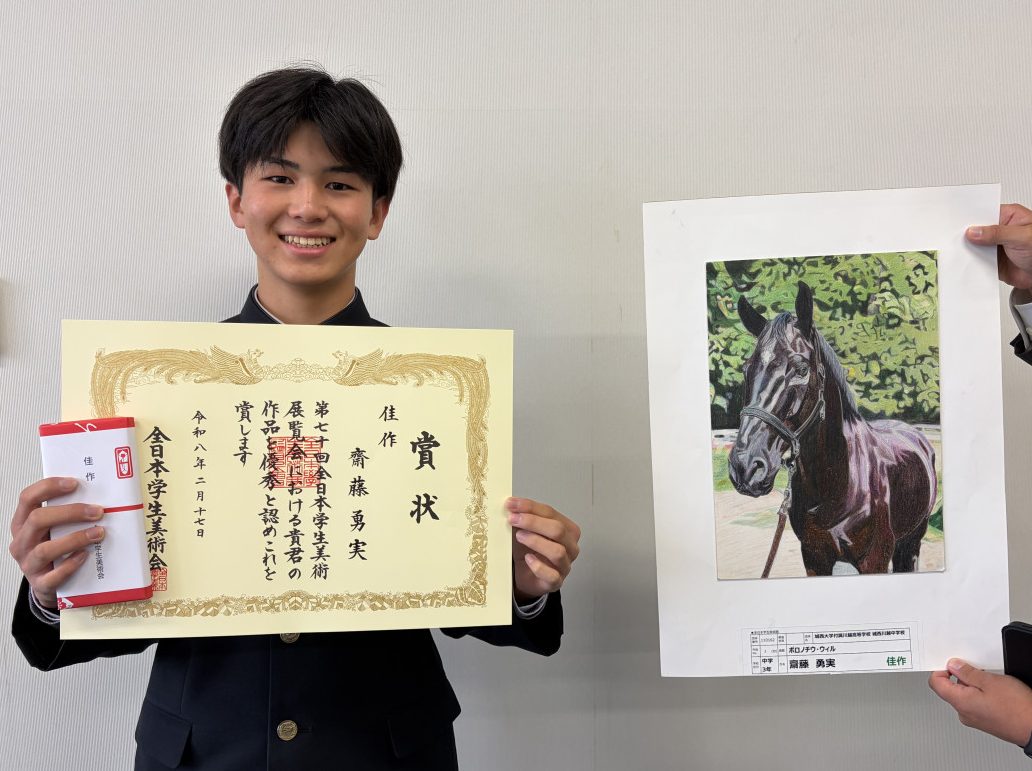 賞状
佳作
齋藤勇実
第七十回全日本学生美術
展覧会における貴君の
作品を優秀と認めこれを
賞します
令和八年二月十七日
全日本学生美術会
佳作
学生美術会
城西大学付属川越高等学校 城西川越中学校
ポロノチウ・ウィル
中学
3年
齋藤 勇実
佳作